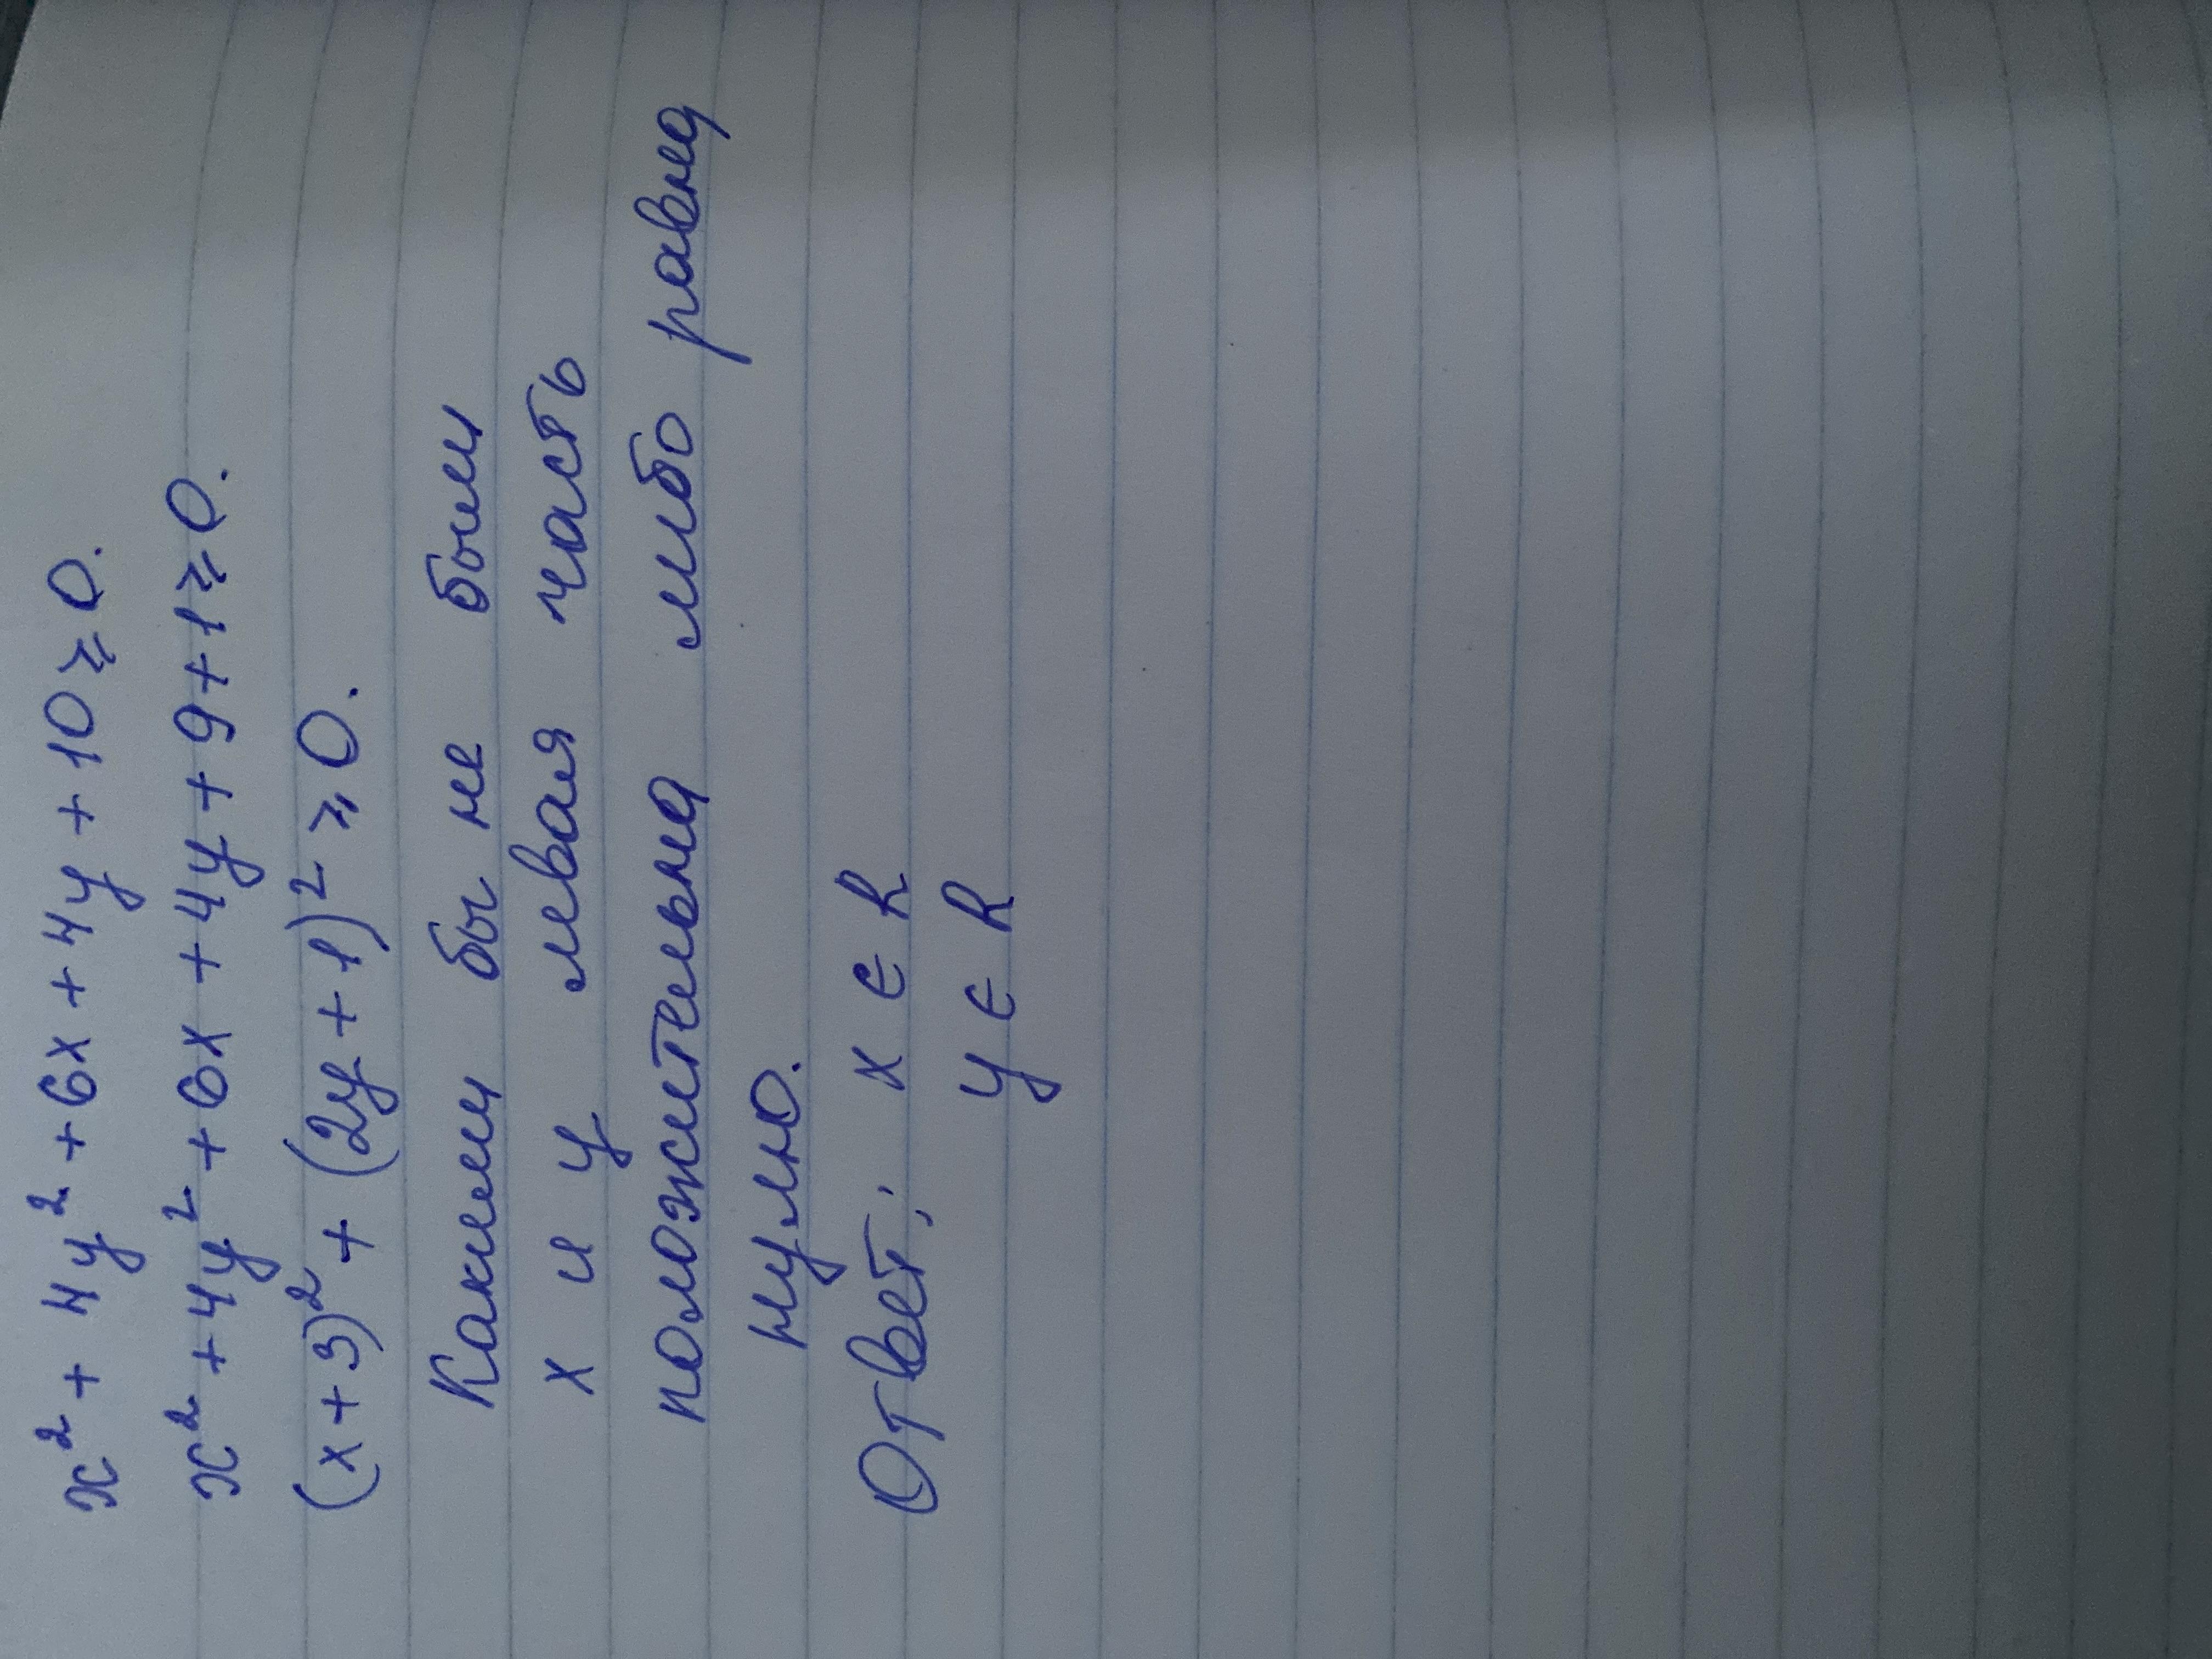 x² + 4y² + 6x + 4y + 10 ≥ 0.
x² + 4y² + 6x + 4y + 9 + 1 ≥ 0.
(x + 3)² + (2y + 1)² ≥ 0.
Какими бы не были
x и y левая часть
положительна либо равна
нулю.
Ответ: x ∈ R
y ∈ R